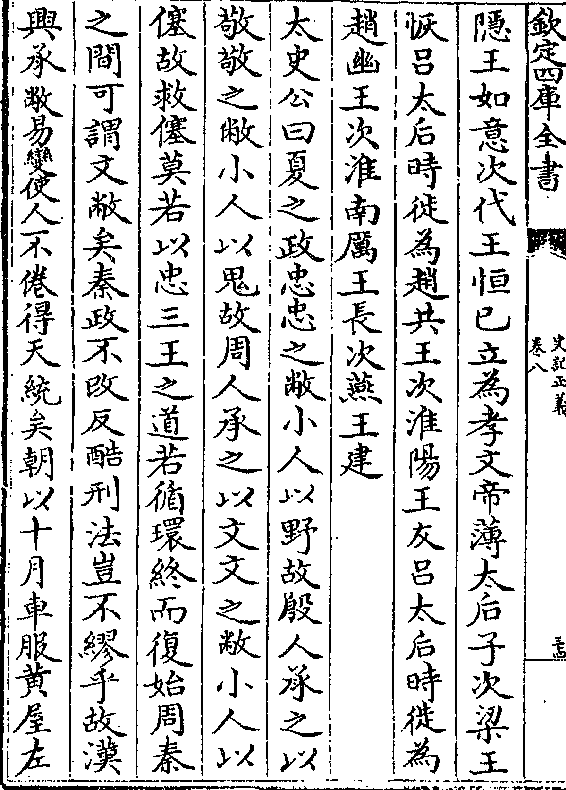 欽定四庫全書
史記正義
卷八
隱王如意次代王恒已立為孝文帝薄太后子次梁王
恢吕太后時徙為趙共王次淮陽王友吕太后時徙為
趙幽王次淮南厲王長次燕王建
太史公曰夏之政忠忠之敝小人以野故殷人承之以
敬敬之敝小人以鬼故周人承之以文文之敝小人以
僿故救僿莫若以忠三王之道若循環終而復始周秦
之間可謂文敝矣秦政不改反酷刑法豈不繆乎故漢
興承敝易變使人不倦得天統矣朝以十月車服黄屋左